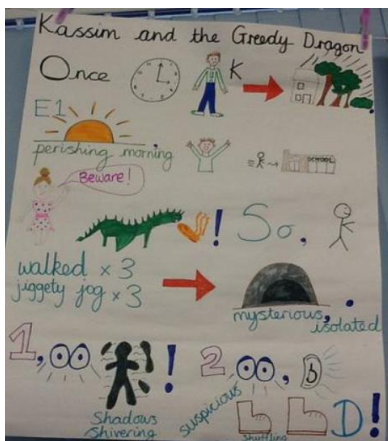 Kassim and the Greedy Dragon
Once K
E1
perishing morning SCHOOL
Beware!
! So,
walked x 3
jiggety jog x 3
mysterious,
isolated
1, ! 2 , b
Shadows
Shivering
suspicious
shuffling
D!